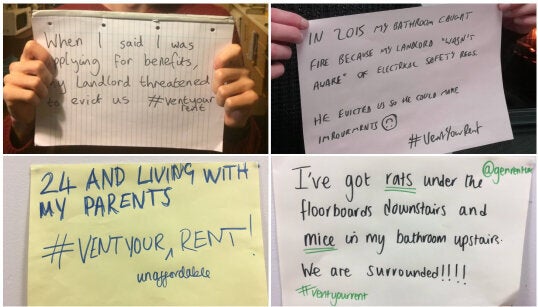 When I said I was
applying for benefits,
my Landlord threatened
to evict us #ventyour
rent
IN 2015 MY BATHROOM CAUGHT
FIRE BECAUSE MY LANDLORD "WASN'T
AWARE" OF ELECTRICAL SAFETY REGS.
HE EVICTED US SO HE COULD MAKE
IMROVMENTS
#VentYourRent
24 AND LIVING WITH
MY PARENTS
#VENTYOUR RENT!
unaffordable
@genrentuk
I've got rats under the
floorboards downstairs and
mice in my bathroom upstairs.
We are surrounded!!!!
#ventyourrent